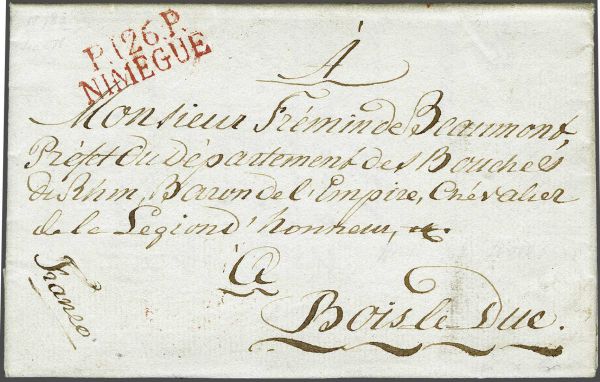 P.126.P.
NIMEGUE
À
Monsieur Frémin de Beaumont,
Préfet du Département des Bouches
du Rhin, Baron de l'Empire, Chévalier
de la Légion d'honneur, &c.
à
Bois-le-Duc.
Franco